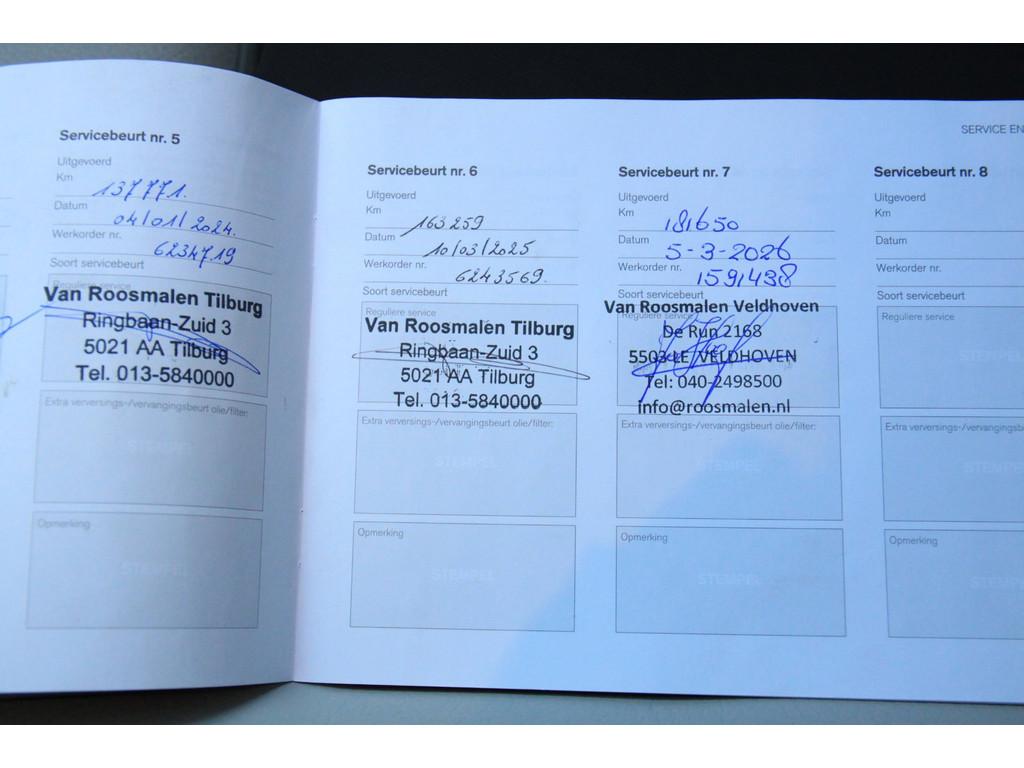 Servicebeurt nr. 5
Uitgevoerd
Km 137771.
Datum 04/01/2024.
Werkorder nr. 6234719
Soort servicebeurt
Reguliere service
Van Roosmalen Tilburg
Ringbaan-Zuid 3
5021 AA Tilburg
Tel. 013-5840000
Extra verversings-/vervangingsbeurt olie/filter:
STEMPEL
Opmerking
STEMPEL
Servicebeurt nr. 6
Uitgevoerd
Km 163259
Datum 10/03/2025
Werkorder nr. 6243569.
Soort servicebeurt
Reguliere service
Van Roosmalen Tilburg
Ringbaan-Zuid 3
5021 AA Tilburg
Tel. 013-5840000
Extra verversings-/vervangingsbeurt olie/filter:
STEMPEL
Opmerking
STEMPEL
Servicebeurt nr. 7
Uitgevoerd
Km 181650
Datum 5-3-2026
Werkorder nr. 1591438
Soort servicebeurt
Reguliere service
Van Roosmalen Veldhoven
De Run 2168
5503 LE VELDHOVEN
Tel: 040-2498500
info@roosmalen.nl
Extra verversings-/vervangingsbeurt olie/filter:
STEMPEL
Opmerking
STEMPEL
SERVICE EN
Servicebeurt nr. 8
Uitgevoerd
Km
Datum
Werkorder nr.
Soort servicebeurt
Reguliere service
STEMPEL
Extra verversings-/vervangingsb
STEMPEL
Opmerking
STEMPEL